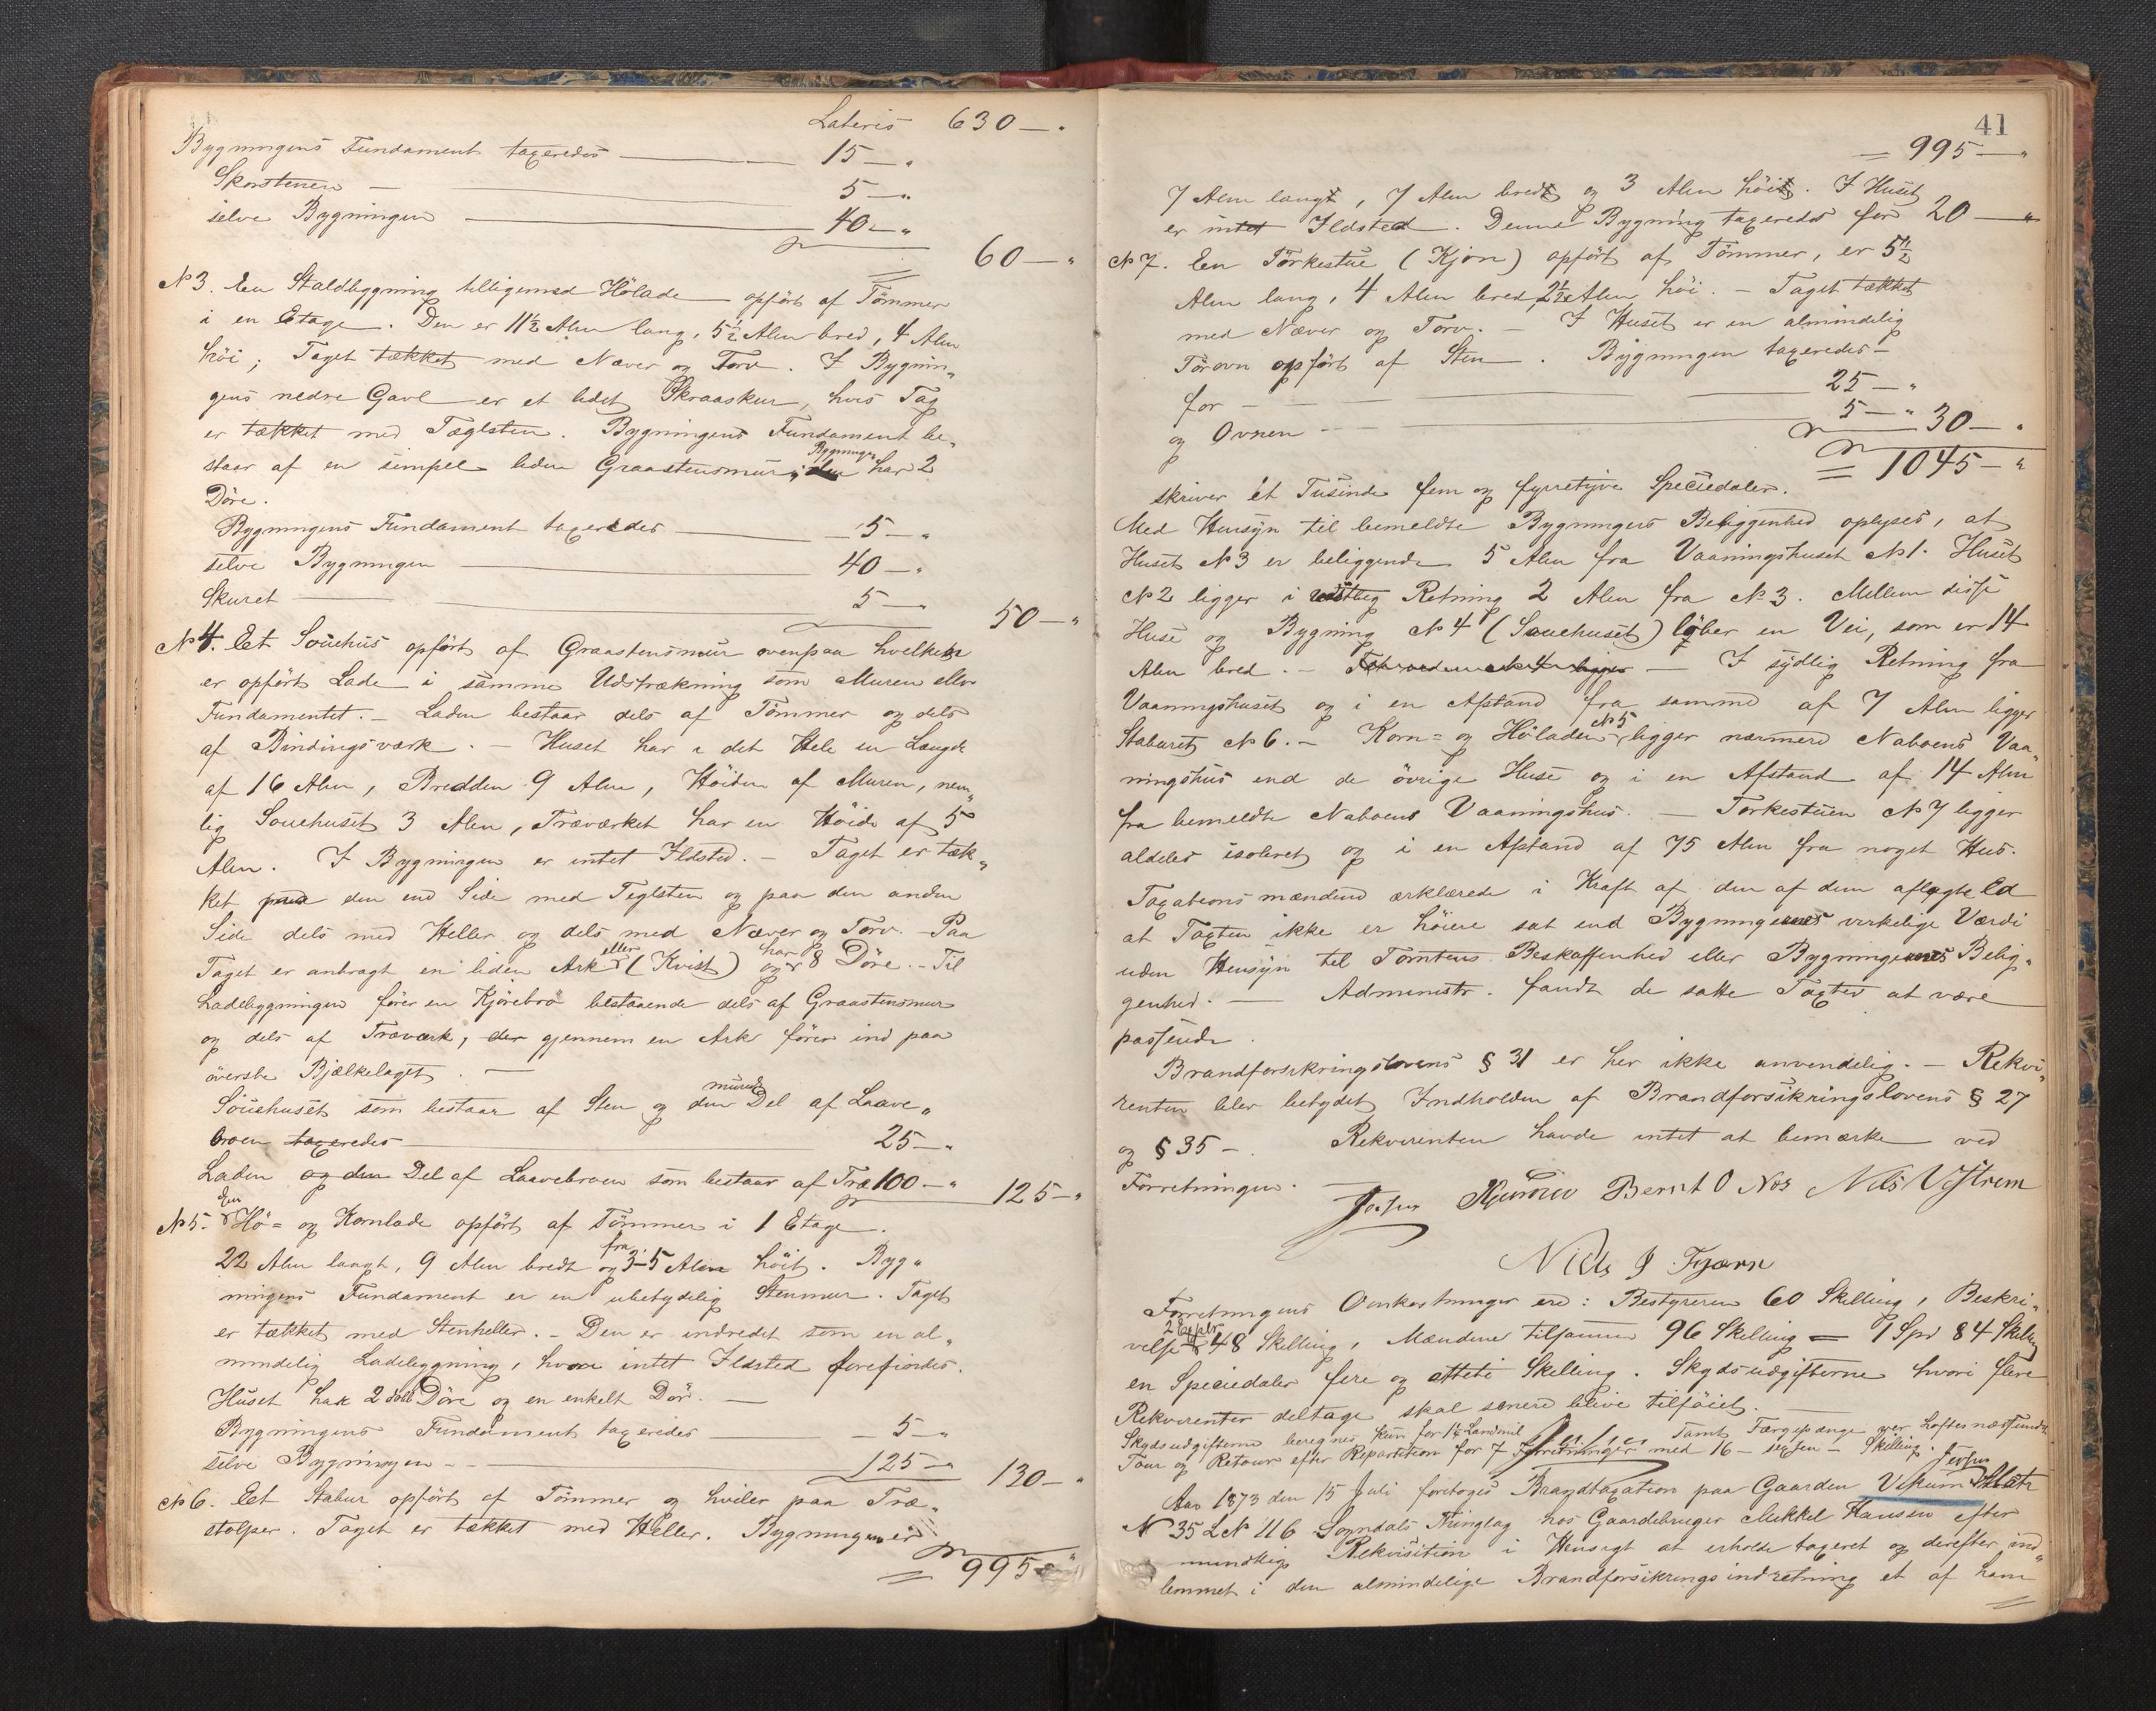 Lateris 630 — "
Bygningens Fundament taxeredes — 15 — "
Skorstenen — 5 — "
selve Bygningen — 40 — "
60 — "
N 3. En Staldbygning tilligemed Hölade opfört af Tömmer
i en Etage. Den er 11½ Alen lang, 5½ Alen bred, 4 Alen
höi; Taget tækket med Næver og Torv. I Bygnin„
gens nedre Gavl er et lidet Skraaskur, hvis Tag
er tækket med Tæglsten. Bygningens Fundament be„
staar af en simpel liden Graastensmur; Bygningen har 2
Döre.
Bygningens Fundament taxeredes — 5 — "
selve Bygningen — 40 — "
Skuret — 5 — " 50 — "
N 4. Et Souehus opfört af Graastensmur ovenpaa hvilken
er opfört Lade i samme Udstrækning som Muren eller
Fundamentet. — Laden bestaar dels af Tömmer og dels
af Bindingsværk. — Huset har i det Hele en Længde
af 16 Alen, Bredden 9 Alen, Höiden af Muren, nem„
lig Souehuset 3 Alen, Træværket har en Höide af 5
Alen. I Bygningen er intet Ildsted. — Taget er tæk„
ket paa den ene Side med Teglsten og paa den anden
Side dels med Heller og dels med Næver og Torv. — Paa
Taget er anbragt en liden Ark eller (Kvist) og har 8 Döre. — Til
Ladebygningen förer en Kjörebro bestaaende dels af Graastensmur
og dels af Træværk, der gjennem en Ark förer ind paa
överste Bjælkelaget. —
Souehuset som bestaar af Sten og den murede Del af Laave„
broen taxeredes — 25 — "
Laden og den Del af Laavebroen som bestaar af Træ 100 — " 125 — "
N 5. En Hö= og Kornlade opfört af Tömmer i 1 Etage.
22 Alen langt, 9 Alen bredt og fra 3–5 Alen höit. Byg„
ningens Fundament er en ubetydelig Stenmur. Taget
er tækket med Stenheller. — Den er indredet som en al„
mindelig Ladebygning, hvori intet Ildsted forefindes.
Huset har 2 dobb. Döre og en enkelt Dör. —
Bygningens Fundament taxeredes — 5 — "
selve Bygningen — 125 — " 130 — "
N 6. Et Stabur opfört af Tömmer og hviler paa Træ„
stolper. Taget er tækket med Heller. Bygningen er
= 995 — "
41
= 995 — "
7 Alen langt, 7 Alen bredt og 3 Alen höit. I Huset
er intet Ildsted. Denne Bygning taxeredes for 20 — "
N 7. En Törkestue (Kjön) opfört af Tömmer, er 5½
Alen lang, 4 Alen bred, 2½ Alen höi. — Taget tækket
med Næver og Torv. — I Huset er en almindelig
Törovn opfört af Sten. Bygningen taxeredes —
for — 25 — "
og Ovnen — 5 — " 30 — "
= 1045 — "
skriver Et Tusinde fem og fyrretyve Speciedaler.
Med Hensyn til bemeldte Bygningers Beliggenhed oplyses, at
Huset N 3 er beliggende 5 Alen fra Vaaningshuset N 1. Huset
N 2 ligger i vestlig Retning 2 Alen fra N 3. Mellem disse
Huse og Bygning N 4 (Souehuset) löber en Vei, som er 14
Alen bred. — I sydlig Retning fra
Vaaningshuset og i en Afstand fra samme af 7 Alen ligger
Staburet N 6. — Korn= og Höladen N 5 ligger nærmere Naboens Vaa„
ningshus end de övrige Huse og i en Afstand af 14 Alen
fra bemeldte Naboens Vaaningshus. — Törkestuen N 7 ligger
aldeles isoleret og i en Afstand af 75 Alen fra noget Hus.
Taxationsmændene erklærede i Kraft af den af dem aflagte Ed
at Taxten ikke er höiere sat end Bygningernes virkelige Værdi
uden Hensyn til Tomtens Beskaffenhed eller Bygningernes Belig„
genhed. — Administr. fandt de satte Taxter at være
passende.
Brandforsikringslovens § 31 er her ikke anvendelig. — Rekvi„
renten blev betydet Indholden af Brandforsikringslovens § 27
og § 35 —. Rekvirenten havde intet at bemærke ved
Forretningen. —
Bernt O Nos Nils Vistrem
Niels J Fjærn
Forretningens Omkostninger ere: Bestyreren 60 Skilling, Beskri„
velse 2 Expl. 48 Skilling, Mændene tilsammen 96 Skilling = 1 Spd 84 Skilling
en Speciedaler fire og otteti Skilling. Skydsudgifterne hvori flere
Rekvirenter deltage skal senere blive tilföiet. —
Skydsudgifterne beregnes kun for 1½ Landmil samt Færgepenge over
Tour og Retour efter Repartition for 7 Forretninger med 16 — sexten — Skilling.
Aar 1873 den 15 Juli foretoges Brandtaxation paa Gaarden
N 35 L N 116 Sogndals Thinglag hos Gaardebruger Mikkel Hansen efter
mundtlig Rekvisition i Hensigt at erholde taxeret og derefter ind„
lemmet i den almindelige Brandforsikringsindretning et af ham